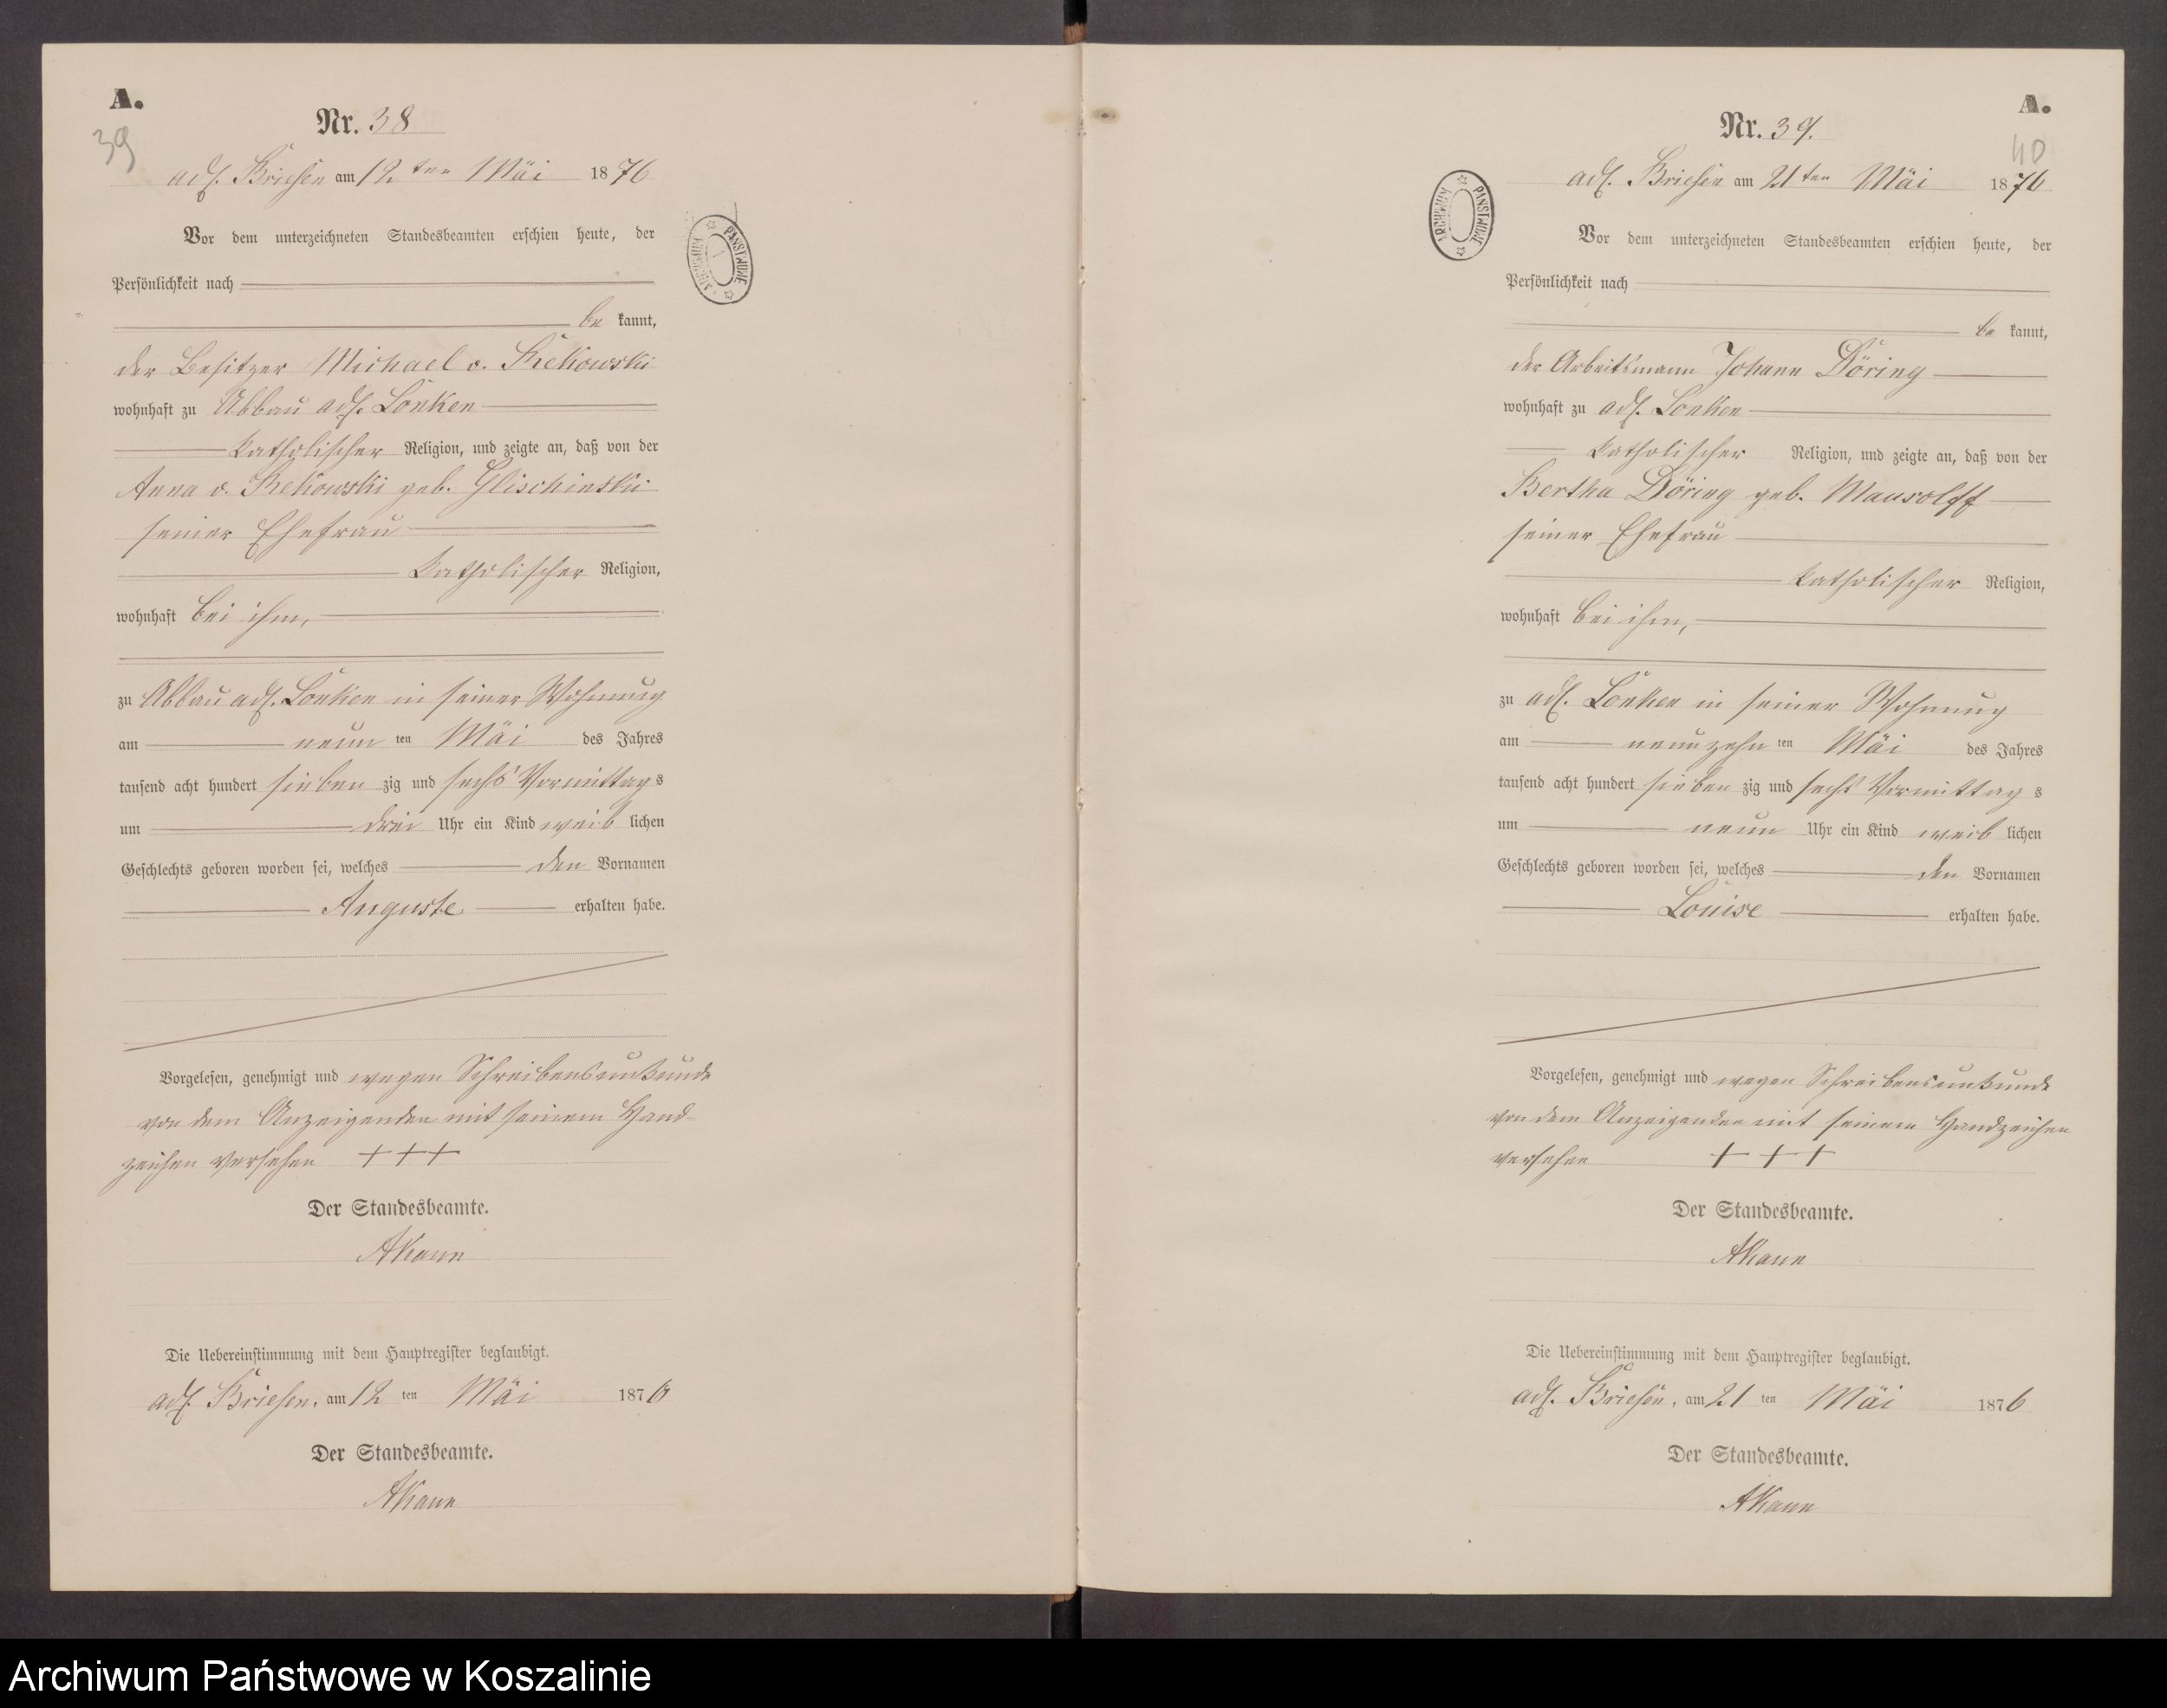 A.
39
Nr. 38
adl. Briesen am 12ten Mai 1876
Vor dem unterzeichneten Standesbeamten erschien heute, der
Persönlichkeit nach
be kannt,
der Besitzer Michael v. Rekowski
wohnhaft zu Abbau adl. Lonken
katholischer Religion, und zeigte an, daß von der
Anna v. Rekowski geb. Glischinski
seiner Ehefrau
katholischer Religion,
wohnhaft bei ihm,
zu Abbau adl. Lonken in seiner Wohnung
am neun ten Mai des Jahres
tausend acht hundert sieben zig und sechs Vormittags
um drei Uhr ein Kind weib lichen
Geschlechts geboren worden sei, welches den Vornamen
Auguste erhalten habe.
Vorgelesen, genehmigt und wegen Schreibensunkunde
von dem Anzeigenden mit seinem Hand-
zeichen versehen +++
Der Standesbeamte.
Die Uebereinstimmung mit dem Hauptregister beglaubigt.
adl. Briesen, am 12 ten Mai 1876
Der Standesbeamte.
A.
40
Nr. 39.
adl. Briesen am 21ten Mai 1876
ARCHIWUM PAŃSTWOWE
Vor dem unterzeichneten Standesbeamten erschien heute, der
Persönlichkeit nach
be kannt,
der Arbeitsmann Johann Döring
wohnhaft zu adl. Lonken
katholischer Religion, und zeigte an, daß von der
Bertha Döring geb. Mausolff
seiner Ehefrau
katholischer Religion,
wohnhaft bei ihm,
zu adl. Lonken in seiner Wohnung
am neunzehn ten Mai des Jahres
tausend acht hundert sieben zig und sechs Vormittag s
um neun Uhr ein Kind weib lichen
Geschlechts geboren worden sei, welches den Vornamen
Louise erhalten habe.
Vorgelesen, genehmigt und wegen Schreibensunkunde
von dem Anzeigenden mit seinem Handzeichen
versehen + + +
Der Standesbeamte.
Die Uebereinstimmung mit dem Hauptregister beglaubigt.
adl. Briesen, am 21 ten Mai 1876
Der Standesbeamte.
Archiwum Państwowe w Koszalinie